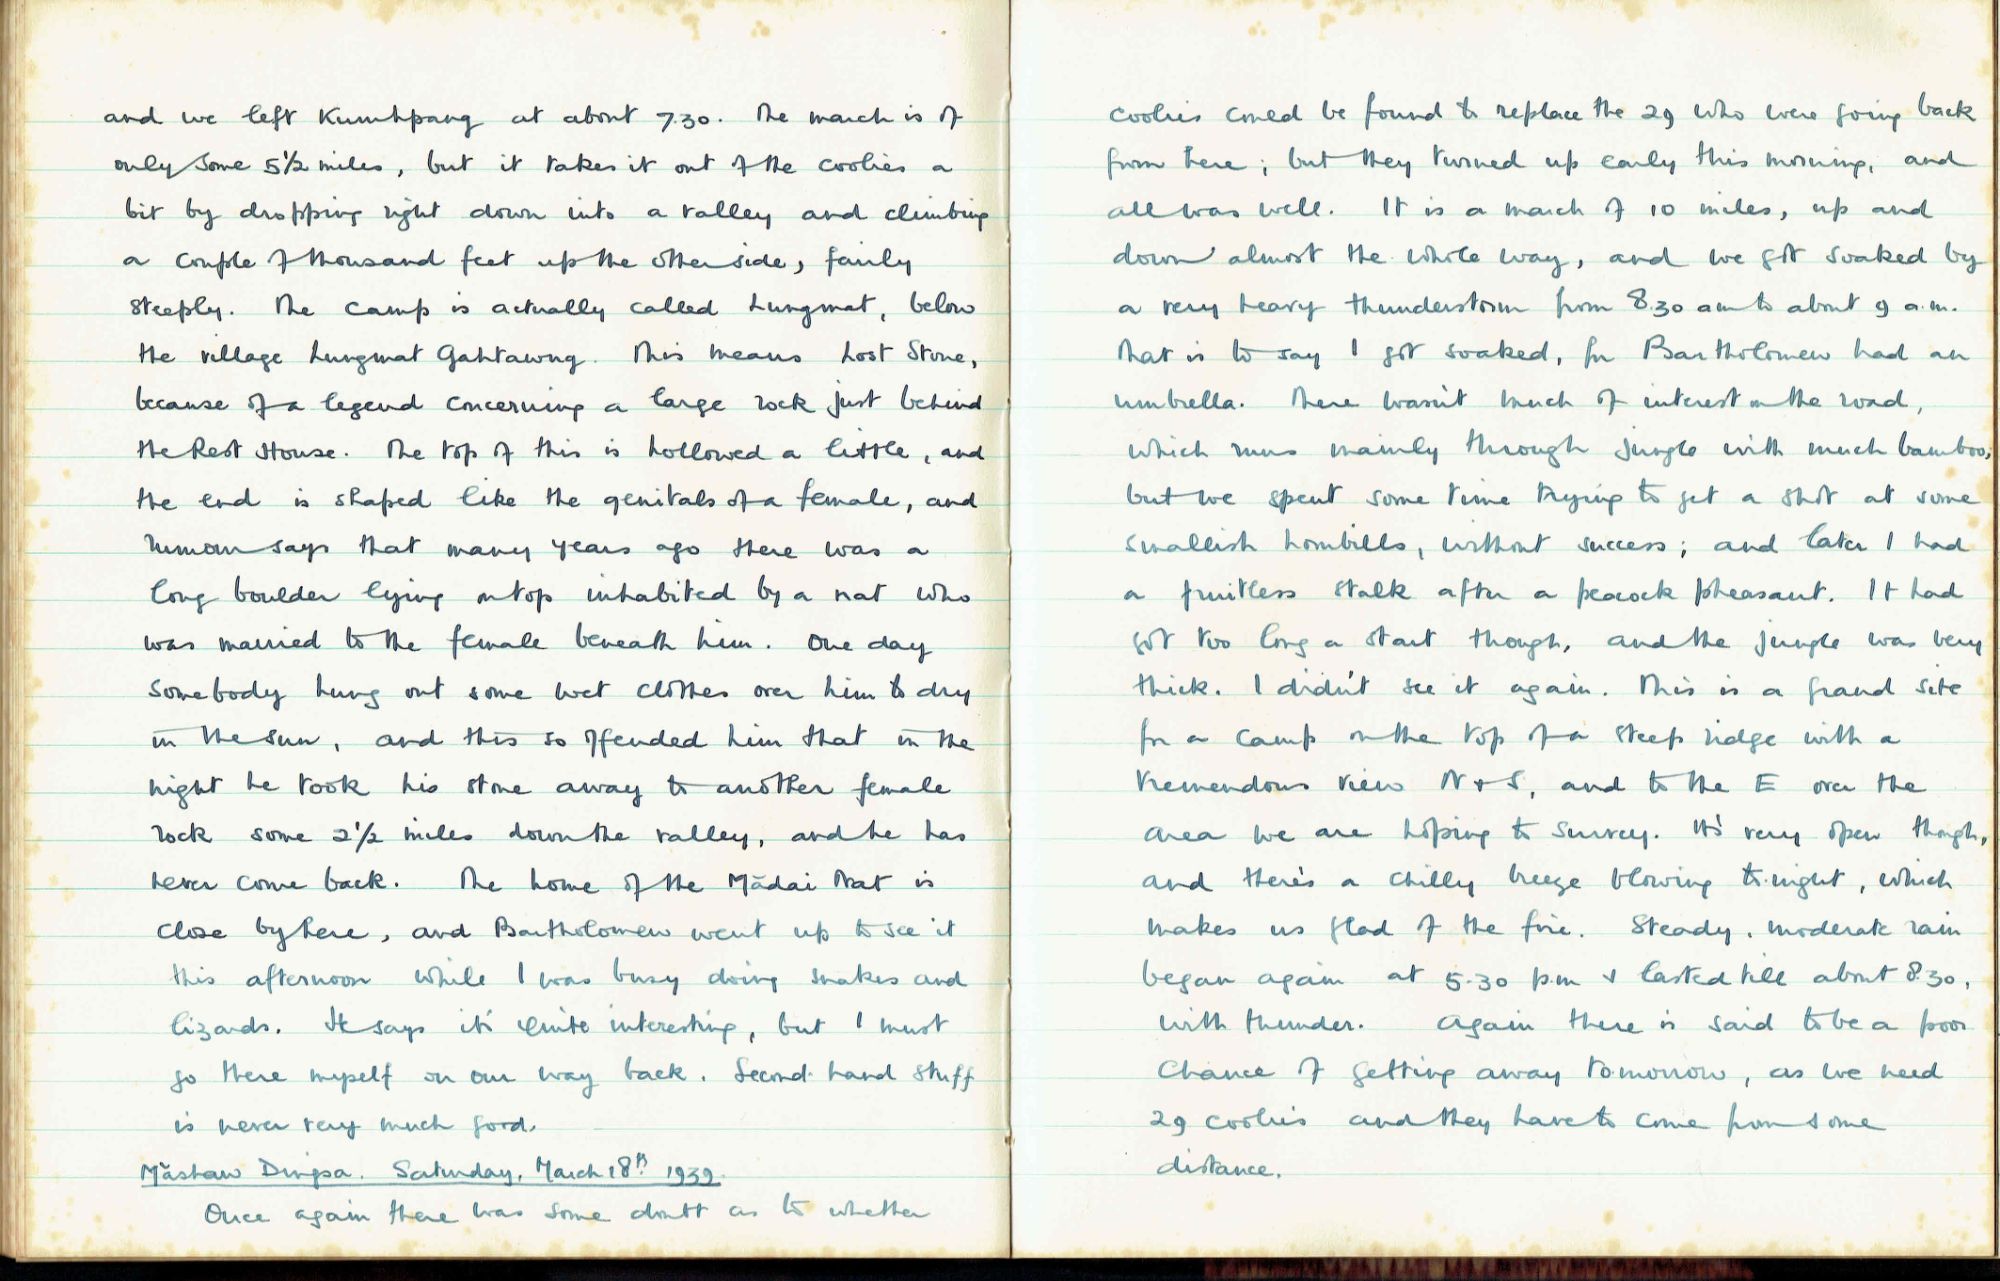 and we left Kumhpang at about 7.30. The march is of
only some 5½ miles, but it takes it out of the coolies a
bit by dropping right down into a valley and climbing
a couple of thousand feet up the other side, fairly
steeply. The camp is actually called Lungmat, below
the village Lungmat Gahtawng. This means Lost Stone,
because of a legend concerning a large rock just behind
the Rest House. The top of this is hollowed a little, and
the end is shaped like the genitals of a female, and
rumour says that many years ago there was a
long boulder lying on top inhabited by a nat who
was married to the female beneath him. One day
somebody hung out some wet clothes over him to dry
in the sun, and this so offended him that in the
night he took his stone away to another female
rock some 2½ miles down the valley, and he has
never come back. The home of the Mădai Nat is
close by here, and Bartholomew went up to see it
this afternoon while I was busy doing snakes and
lizards. He says it's quite interesting, but I must
go there myself on our way back. Second-hand stuff
is never very much good.
Măshaw Dingsa. Saturday, March 18th 1939.
Once again there was some doubt as to whether
coolies could be found to replace the 29 who were going back
from here; but they turned up early this morning, and
all was well. It is a march of 10 miles, up and
down almost the whole way, and we got soaked by
a very heavy thunderstorm from 8.30 am to about 9 a.m.
That is to say I got soaked, for Bartholomew had an
umbrella. There wasn't much of interest on the road,
which runs mainly through jungle with much bamboo;
but we spent some time trying to get a shot at some
smallish hornbills, without success; and later I had
a fruitless stalk after a peacock pheasant. It had
got too long a start though, and the jungle was very
thick. I didn't see it again. This is a grand site
for a camp on the top of a steep ridge with a
tremendous view N & S, and to the E over the
area we are hoping to survey. It's very open though,
and there's a chilly breeze blowing to-night, which
makes us glad of the fire. Steady, moderate rain
began again at 5.30 p.m & lasted till about 8.30,
with thunder. Again there is said to be a poor
chance of getting away tomorrow, as we need
29 coolies and they have to come from some
distance.